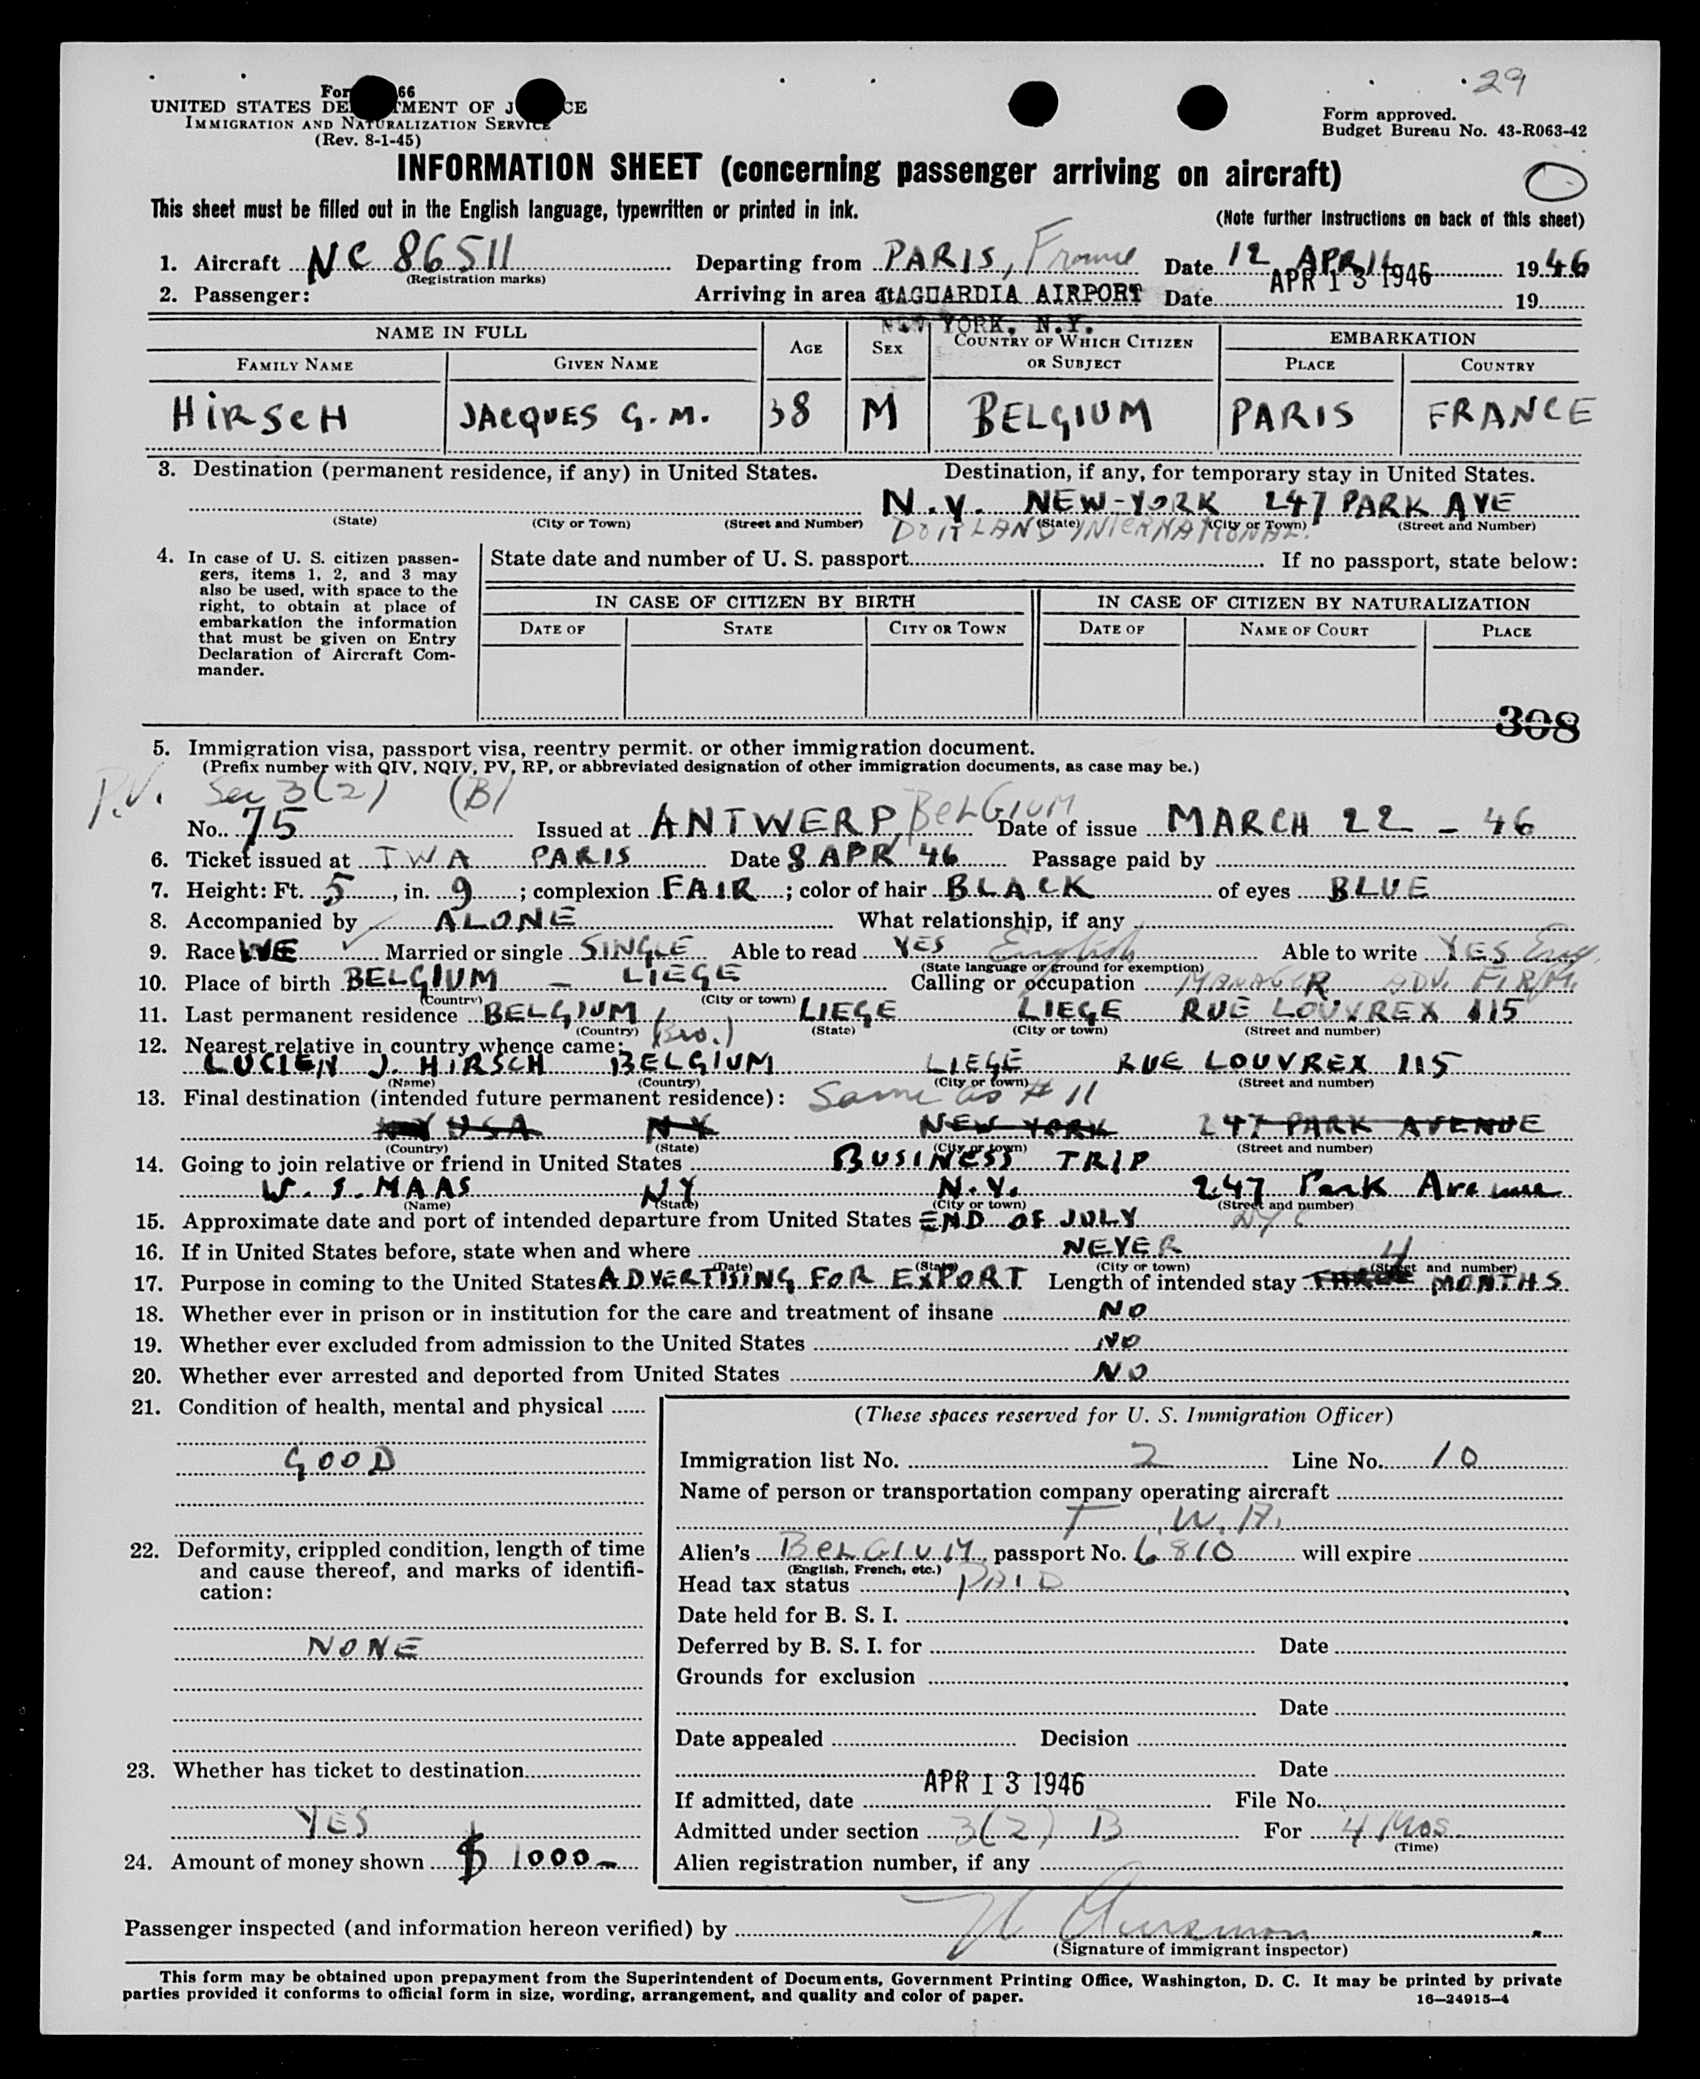 29
For 66
UNITED STATES DE TMENT OF J CE
IMMIGRATION AND NATURALIZATION SERVICE
(Rev. 8-1-45)
Form approved.
Budget Bureau No. 43-R063-42
INFORMATION SHEET (concerning passenger arriving on aircraft)
This sheet must be filled out in the English language, typewritten or printed in ink.
(Note further instructions on back of this sheet)
1. Aircraft NC 86511 Departing from PARIS, France Date 12 APRIL 1946
(Registration marks)
2. Passenger: Arriving in area at LAGUARDIA AIRPORT Date APR 13 1946 19
NEW YORK, N.Y.
NAME IN FULL AGE SEX COUNTRY OF WHICH CITIZEN OR SUBJECT EMBARKATION
FAMILY NAME GIVEN NAME PLACE COUNTRY
HIRSCH JACQUES G.M. 38 M BELGIUM PARIS FRANCE
3. Destination (permanent residence, if any) in United States. Destination, if any, for temporary stay in United States.
N.Y. NEW-YORK 247 PARK AVE
(State) (City or Town) (Street and Number) (State) (City or Town) (Street and Number)
DORLAND INTERNATIONAL.
4. In case of U. S. citizen passen-
gers, items 1, 2, and 3 may
also be used, with space to the
right, to obtain at place of
embarkation the information
that must be given on Entry
Declaration of Aircraft Com-
mander.
State date and number of U. S. passport If no passport, state below:
IN CASE OF CITIZEN BY BIRTH IN CASE OF CITIZEN BY NATURALIZATION
DATE OF STATE CITY OR TOWN DATE OF NAME OF COURT PLACE
308
5. Immigration visa, passport visa, reentry permit, or other immigration document.
(Prefix number with QIV, NQIV, PV, RP, or abbreviated designation of other immigration documents, as case may be.)
P.V. Sec 3(2) (B)
No. 75 Issued at ANTWERP, BELGIUM Date of issue MARCH 22 - 46
6. Ticket issued at TWA PARIS Date 8 APR 46 Passage paid by
7. Height: Ft. 5, in. 9; complexion FAIR; color of hair BLACK of eyes BLUE
8. Accompanied by ALONE What relationship, if any
9. Race Married or single SINGLE Able to read YES English Able to write YES Eng.
(State language or ground for exemption)
10. Place of birth BELGIUM - LIEGE Calling or occupation MANAGER ADV. FIRM.
(Country) (City or town)
11. Last permanent residence BELGIUM, LIEGE LIEGE RUE LOUVREX 115
(Country) (State) (City or town) (Street and number)
12. Nearest relative in country whence came: (Bro.)
LUCIEN J. HIRSCH BELGIUM LIEGE RUE LOUVREX 115
(Name) (Country) (City or town) (Street and number)
13. Final destination (intended future permanent residence): Same as # 11
USA NY NEW YORK 247 PARK AVENUE
(Country) (State) (City or town) (Street and number)
14. Going to join relative or friend in United States BUSINESS TRIP
W. S. MAAS NY N.Y. 247 Park Avenue
(Name) (State) (City or town) (Street and number)
15. Approximate date and port of intended departure from United States END OF JULY NYC
16. If in United States before, state when and where NEVER
(Date) (State) (City or town) (Street and number)
17. Purpose in coming to the United States ADVERTISING FOR EXPORT Length of intended stay THREE 4 MONTHS
18. Whether ever in prison or in institution for the care and treatment of insane NO
19. Whether ever excluded from admission to the United States NO
20. Whether ever arrested and deported from United States NO
21. Condition of health, mental and physical
GOOD
22. Deformity, crippled condition, length of time
and cause thereof, and marks of identifi-
cation:
NONE
23. Whether has ticket to destination
YES
24. Amount of money shown $ 1000-
(These spaces reserved for U. S. Immigration Officer)
Immigration list No. 2 Line No. 10
Name of person or transportation company operating aircraft
T.W.A.
Alien's BELGIUM passport No. 6810 will expire
(English, French, etc.)
Head tax status PAID
Date held for B. S. I.
Deferred by B. S. I. for Date
Grounds for exclusion
Date
Date appealed Decision
Date
If admitted, date APR 13 1946 File No.
Admitted under section 3(2) B For 4 Mos
(Time)
Alien registration number, if any
Passenger inspected (and information hereon verified) by
(Signature of immigrant inspector)
This form may be obtained upon prepayment from the Superintendent of Documents, Government Printing Office, Washington, D. C. It may be printed by private
parties provided it conforms to official form in size, wording, arrangement, and quality and color of paper.
16—24915-4